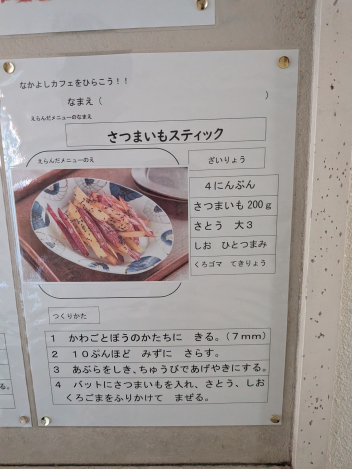 なかよしカフェをひらこう！！
なまえ（　　　　　　　　　　）
えらんだメニューのなまえ
さつまいもスティック
えらんだメニューのえ
ざいりょう
４にんぶん
さつまいも200ｇ
さとう　大３
しお　ひとつまみ
くろゴマ　てきりょう
つくりかた
１　かわごとぼうのかたちに　きる。（７ｍｍ）
２　１０ぷんほど　みずに　さらす。
３　あぶらをしき、ちゅうびであげやきにする。
４　バットにさつまいもを入れ、さとう、しお
くろごまをふりかけて　まぜる。